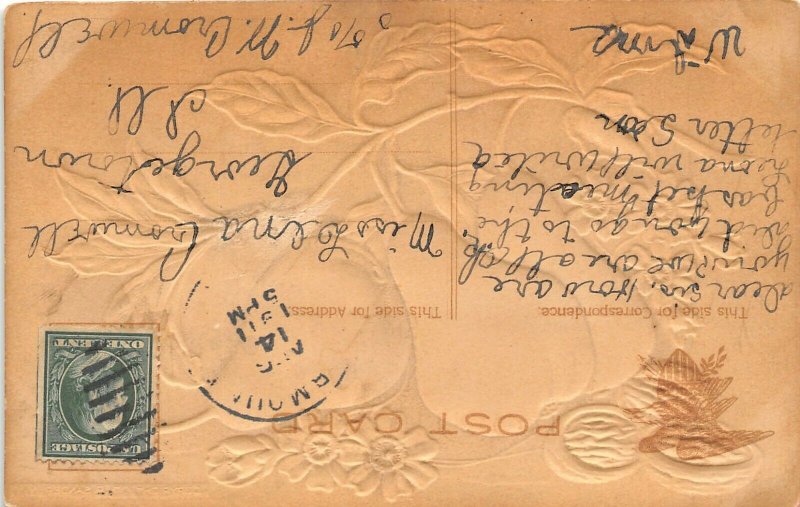 POST CARD
This side for Correspondence.
This side for Address.
Dear Sis, How are
you? We are all ok.
did you go to the
basket meeting
Leona will write a
letter Soon
Wilma
Miss Lena Cromwell
Georgetown
Ill
c/o J. N. Cromwell
AUG
14
5 PM
1911
U.S. POSTAGE
ONE CENT